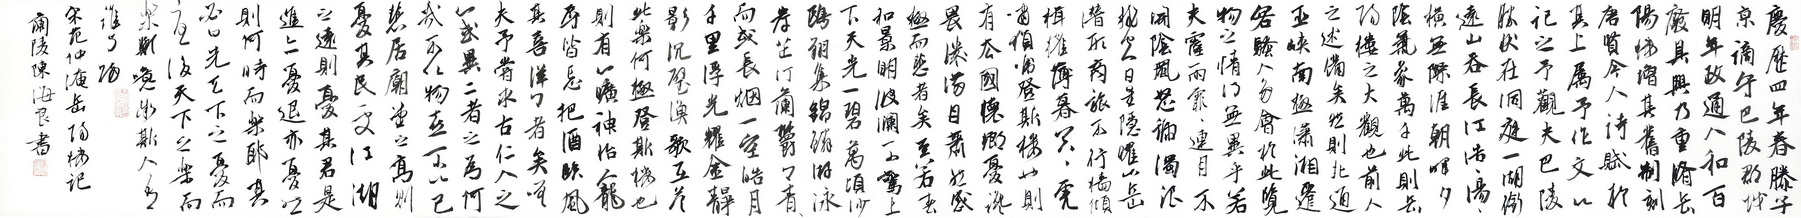 慶歷四年春滕子
京謫守巴陵郡越
明年政通人和百
廢具興乃重脩岳
陽樓增其舊制刻
唐賢今人詩賦於
其上属予作文以
記之予觀夫巴陵
勝状在洞庭一湖銜
遠山吞長江浩浩湯湯
橫無際涯朝暉夕
陰氣象萬千此則岳
陽樓之大觀也前人
之述備矣然則北通
巫峽南極瀟湘遷
客騷人多會於此覽
物之情得無異乎若
夫霪雨霏霏連月不
開陰風怒號濁浪
排空日星隱曜山岳
潛形商旅不行檣傾
楫摧薄暮冥冥虎
嘯猿啼登斯樓也則
有去國懷鄉憂讒
畏譏滿目蕭然感
極而悲者矣至若春
和景明波瀾不驚上
下天光一碧萬頃沙
鷗翔集錦鱗游泳
岸芷汀蘭鬱鬱青青
而或長烟一空皓月
千里浮光耀金靜
影沉璧漁歌互答
此樂何極登斯樓也
則有心曠神怡寵
辱皆忘把酒臨風
其喜洋洋者矣嗟
夫予嘗求古仁人之
心或異二者之為何
哉不以物喜不以己
悲居廟堂之高則
憂其民處江湖
之遠則憂其君是
進亦憂退亦憂然
則何時而樂耶其
必曰先天下之憂而
憂後天下之樂而
樂歟噫微斯人吾
誰與歸
宋范仲淹岳陽樓記
蘭陵陳海良書